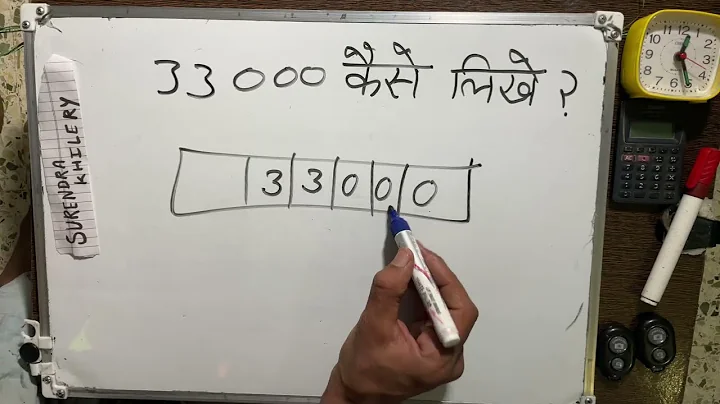 33000 कैसे लिखे ?
3 3 0 0 0
SURENDRA
KHILERY
12
1
2
3
4
5
6
7
8
9
10
11